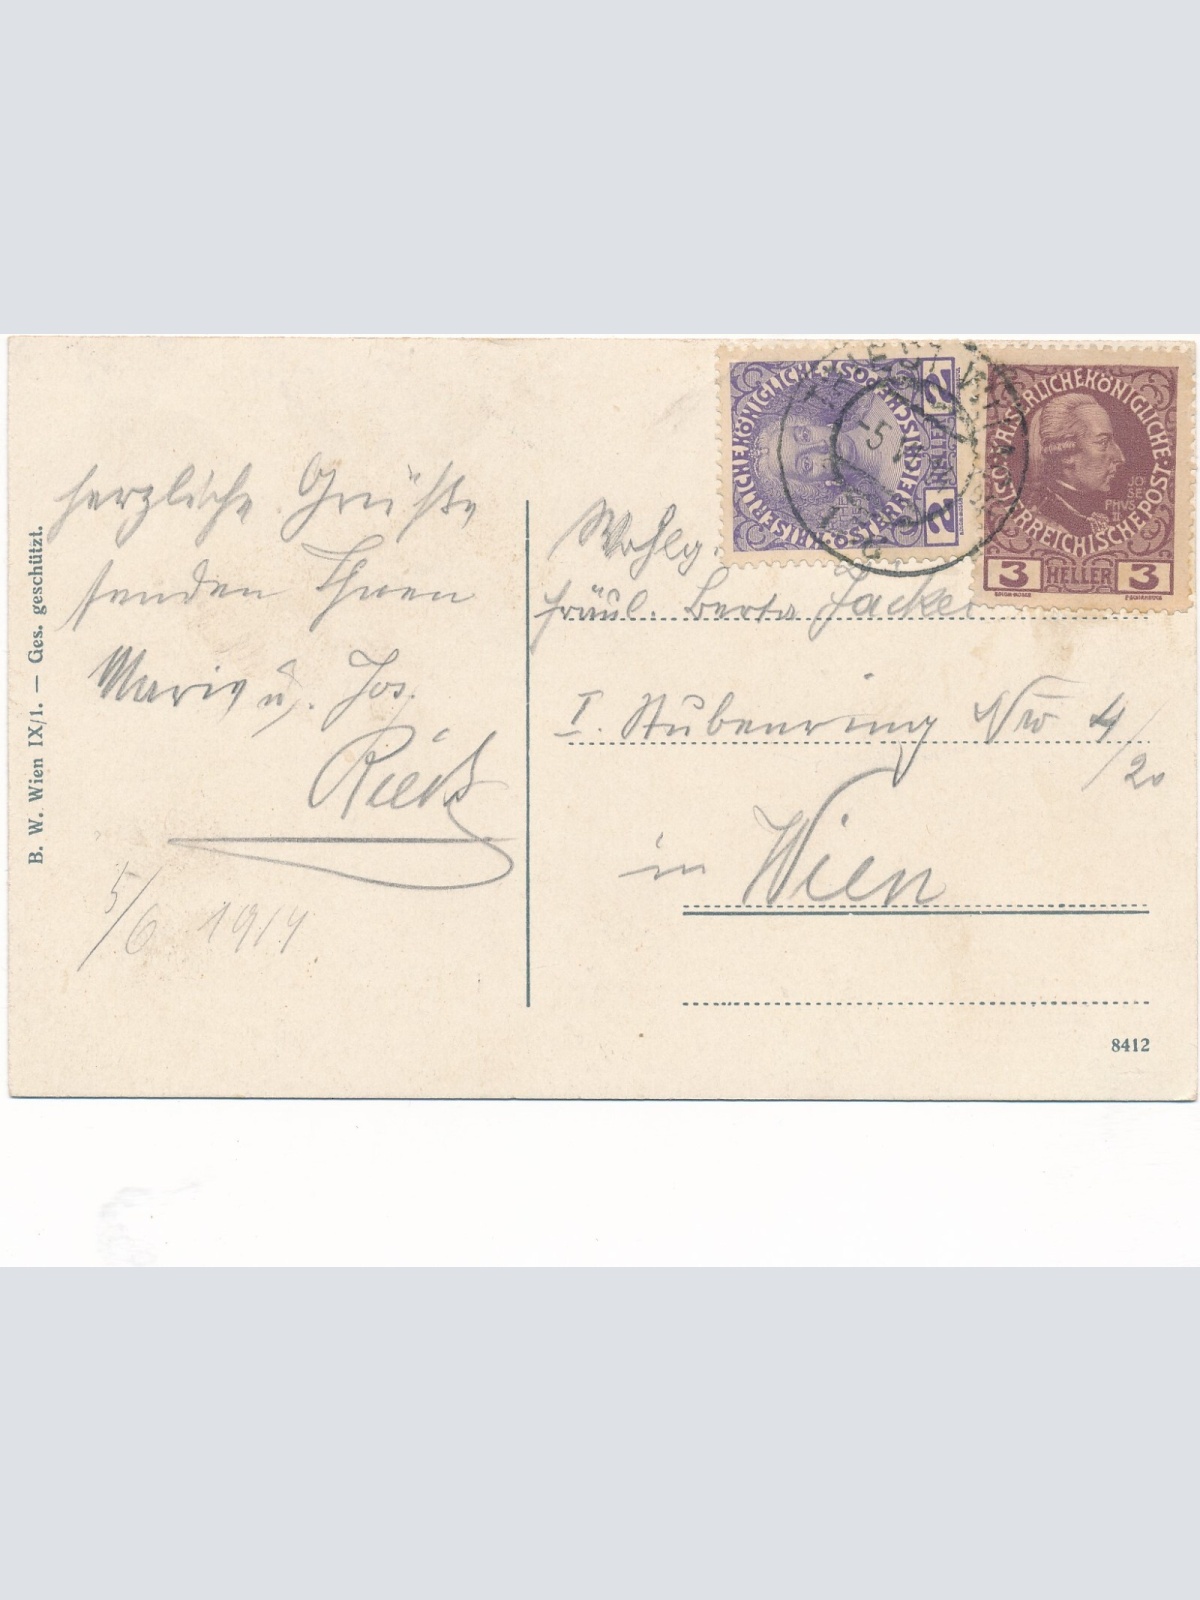 B. W. Wien IX/1. — Ges. geschützt.
herzliche Grüße
senden Ihnen
Marie u. Jos.
5/6 1914
Wohlg.
Fräul. Berta Jacker
I. Stubenring Nro 4/20
in Wien
8412
KAISERLICHE KÖNIGLICHE ÖSTERREICHISCHE POST
2 HELLER 2
KAISERLICHE KÖNIGLICHE ÖSTERREICHISCHE POST
JO
SE
PHVS
II
3 HELLER 3